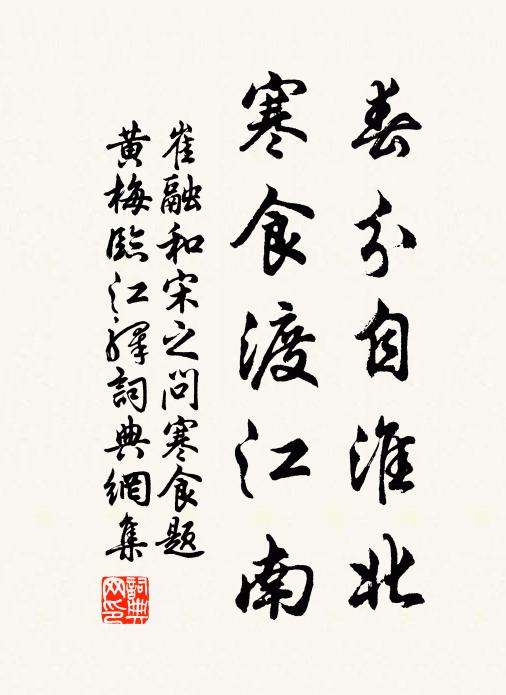 春分自淮北
寒食渡江南
崔融和宋之問寒食題
黄梅臨江驛詞典網集
詞典
网印